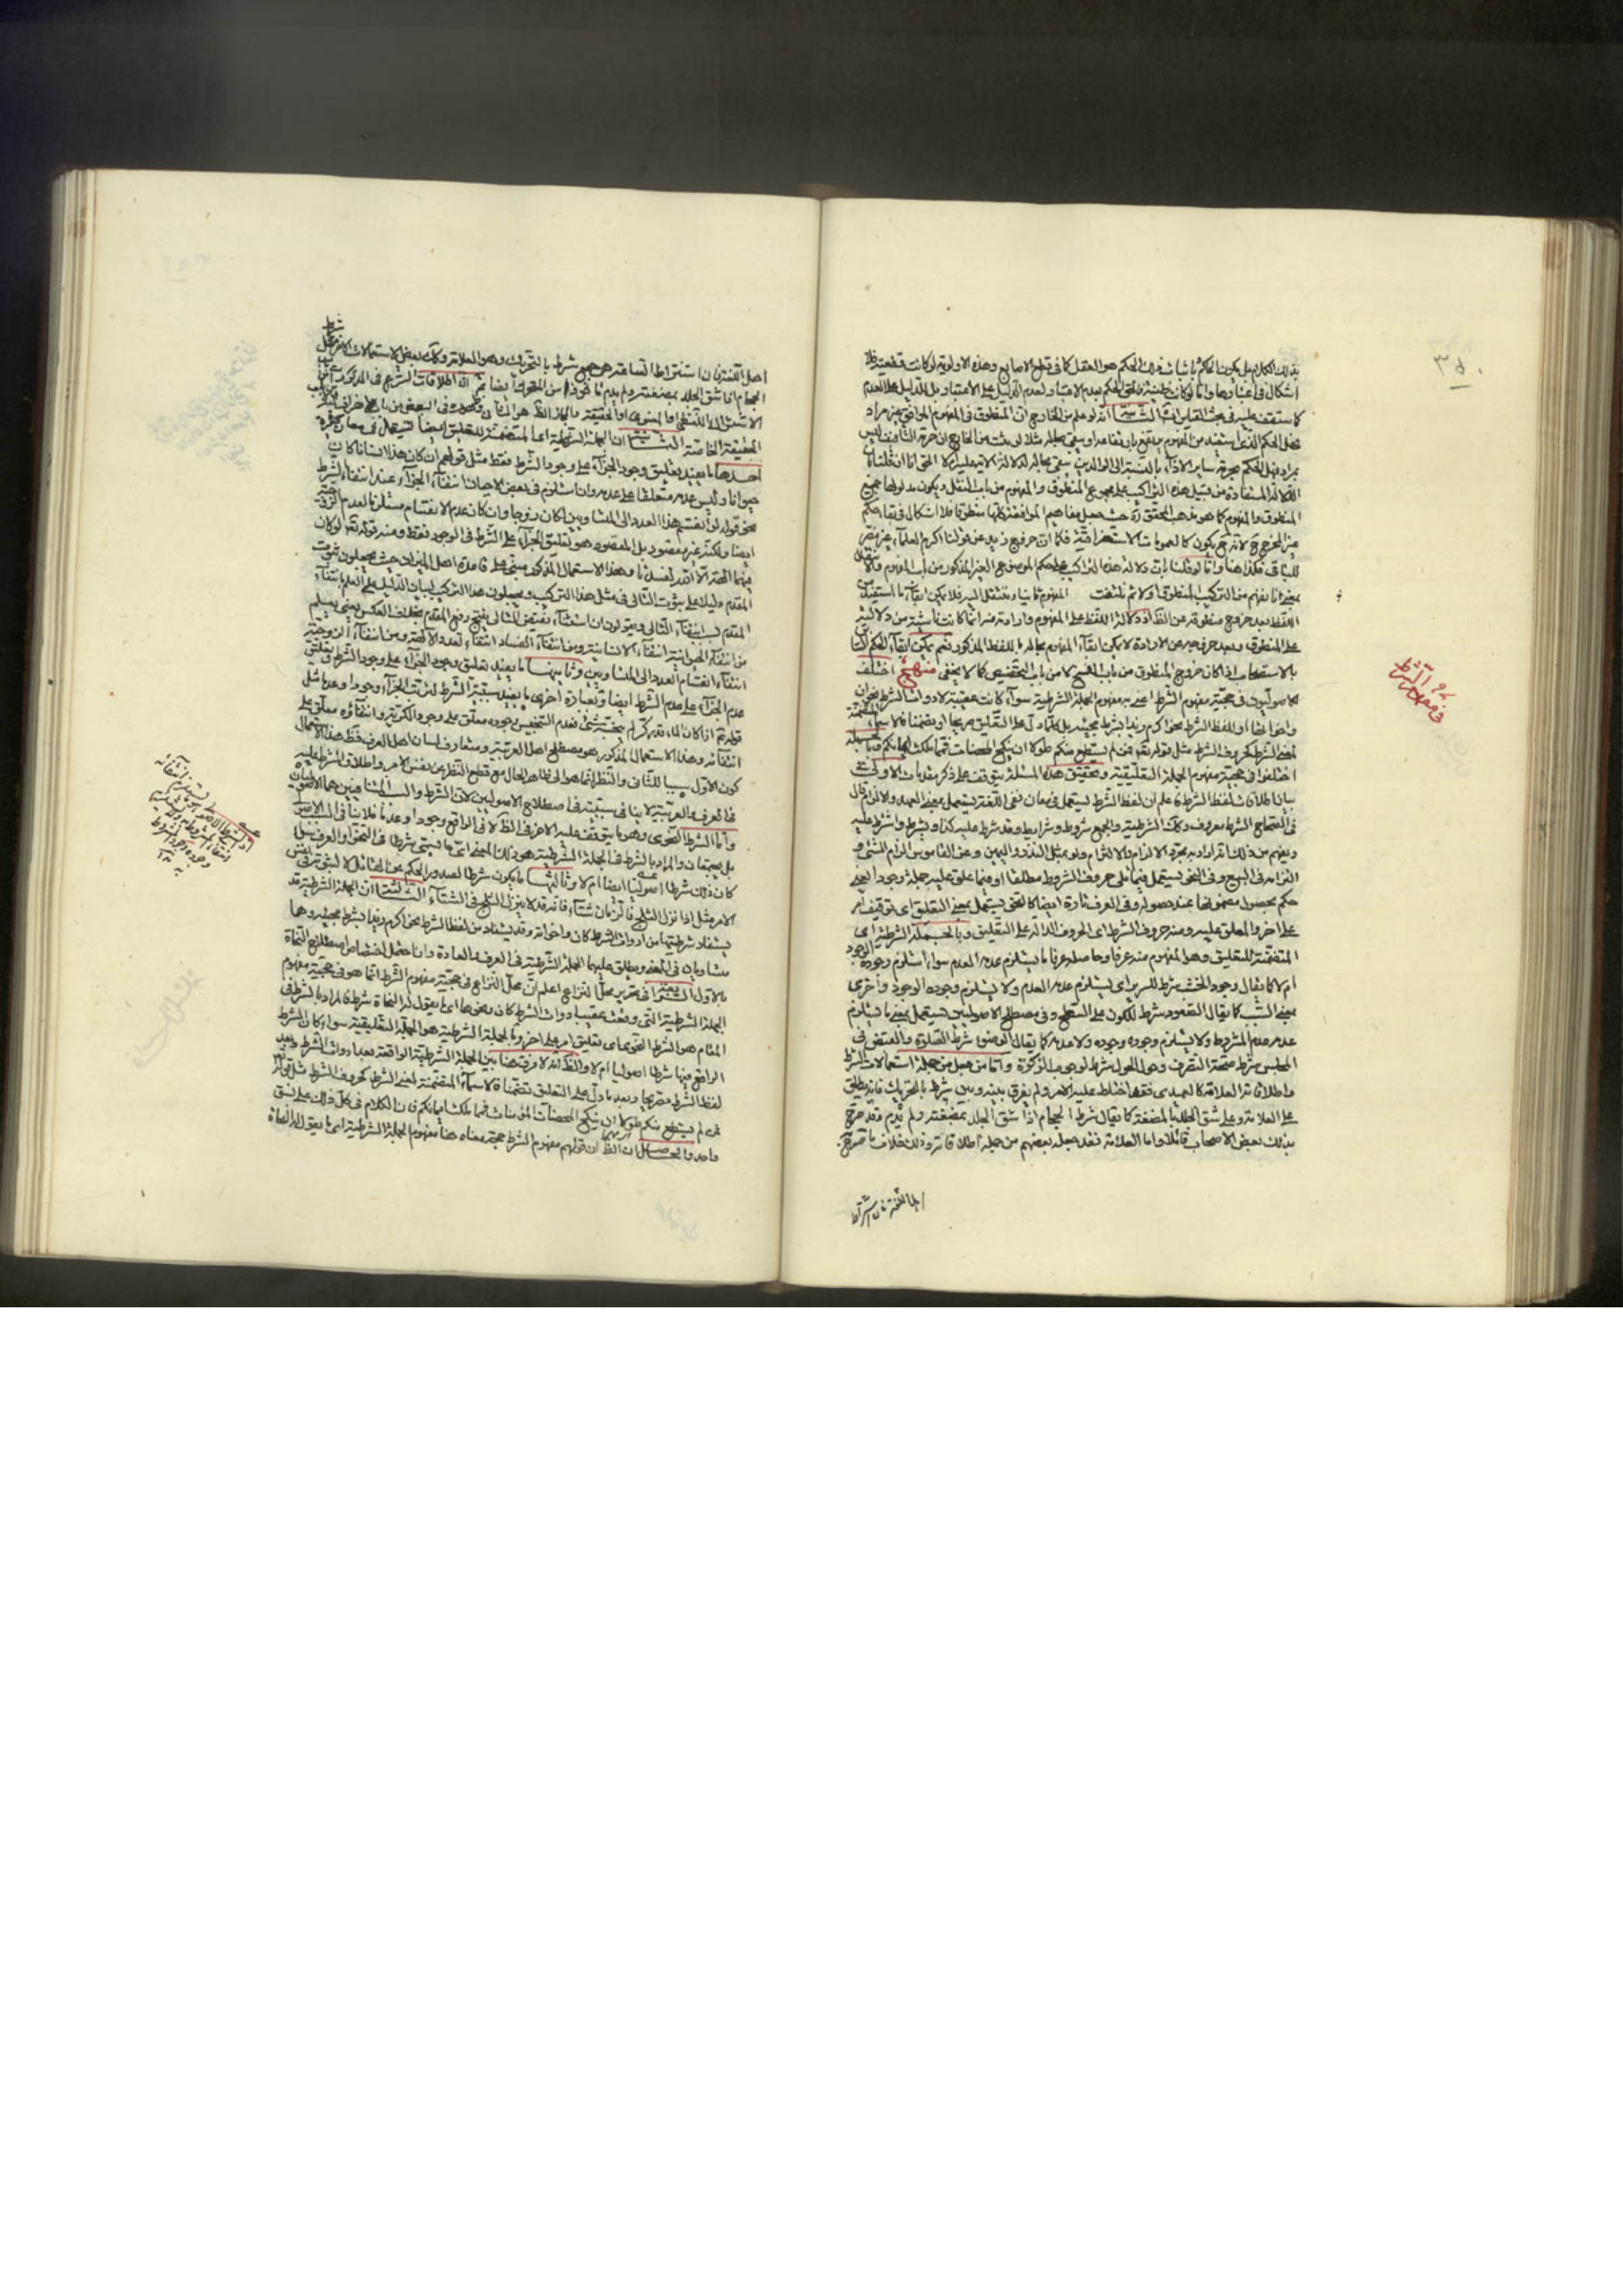 بذلك الكلام بل يكون الحاكم باثبات ذلك الحكم هو العقل كما في قطع الاصابع وهذه الاولوية لو كانت قطعية فلا
اشكال في اعتبارها واما لو كانت ظنية فالحق الحكم بعدم الاعتبار لعدم الدليل على الاعتبار بل الدليل على العدم
كما ستقف عليه في بحث القياس انه لو علم من الخارج ان المنطوق في المفهوم الموافق غير مراد
فهل الحكم الذي استفيد من المفهوم يرتفع بارتفاعه او يبقى بحاله مثلا لو ثبت من الخارج ان حرمة التأفيف ليس
بمراد فهل الحكم بحرمة ساير الاذاء بالنسبة الى الوالدين يبقى بحاله لدلالة الآية عليه ام لا الحق انا ان قلنا بان
الدلالة المستفادة من قبيل هذه التراكيب على مجموع المنطوق والمفهوم من باب النقل ويكون مدلولها جميع
المنطوق والمفهوم كما هو مذهب المحقق ره حيث جعل مفاهيم الموافقة كلها منطوقا فلا اشكال في بقاء حكم
غير المخرج لانه ح يكون كالعمومات الاستغراقية فكما ان خروج زيد عن قولنا اكرم العلماء غير مضر
للباقي فكذا هنا واما لو قلنا بان دلالة هذه التراكيب على حكم الموضوع الغير المذكور من باب المفهوم والانتقال
بمعنى انا نفهم من التركيب المنطوق اولا ثم نلتفت المفهوم ثانيا وننتقل اليه فلا يمكن ابقاء ما استفيد من
اللفظ بعد خروج منطوقه عن الظاهر اذ دلالة اللفظ على المفهوم وارادته منه انما كانت ناشية من دلالته
على المنطوق وبعد خروجه عن الارادة لا يمكن ابقاء المفهوم بحاله باللفظ المذكور نعم يمكن ابقاء الحكم
بالاستصحاب اذا كان خروج المنطوق من باب النسخ لا من باب التخصيص كما لا يخفى منهج اختلف
الاصوليون في حجية مفهوم الشرط اعني به مفهوم الجملة الشرطية سواء كانت عقيبة لادوات الشرط نحو ان
واخواتها او للفظ الشرط نحو اكرم زيدا بشرط مجيئه بل كلما دل على التعليق صريحا او تضمنا كالاسماء المتضمنة
لمعنى الشرط كحروف الشرط مثل قوله تعم فمن لم يستطع منكم طولا ان ينكح المحصنات فمما ملكت ايمانكم
اختلفوا في حجية مفهوم الجملة التعليقية وتحقيق هذه المسئلة يتوقف على ذكر مقدمات الاولى في
بيان اطلاقات لفظ الشرط فاعلم ان لفظ الشرط يستعمل في معان ففي اللغة يستعمل بمعنى العهد والالزام قال
في الصحاح الشرط معروف وكذلك الشرطية والجمع شروط وشرايط وقد شرط عليه كذا ويشرط واشترط عليه
ويفهم من ذلك انه اراد به مجرد الالزام والالتزام ولو بمثل النذر واليمين وعن القاموس الزام الشيء و
التزامه في البيع وفي النحو يستعمل فيما تلى حروف الشروط مطلقا او فيما علق عليه جملة وجودا بمعنى
حكم بحصول مضمونها عند حصوله وفي العرف تارة ايضا كالنحو يستعمل بمعنى التعليق اي توقيف امر
على اخر والمعلق عليه ومنه حروف الشرط اي الحروف الدالة على التعليق وبالجملة الشرطية اي
المتضمنة للتعليق وهو المفهوم منه عرفا وحاصله عرفا ما يستلزم عدمه العدم سواء استلزم وجوده الوجود
ام لا كما يقال وجود الخشب شرط للسرير اي يستلزم عدمه العدم ولا يستلزم وجوده الوجود واخرى
بمعنى السبب كما يقال الصعود شرط للكون على السطح وفي مصطلح الاصوليين يستعمل بمعنى ما يستلزم
عدمه عدم المشروط ولا يستلزم وجوده وجوده ولا عدمه كما يقال الوضوء شرط الصلوة والقبض في
المجلس شرط صحة التصرف وحول الحول شرط لوجوب الزكوة واما من جعل من جملة استعمالات الشرط
واطلاقاته العلاقة كالعميدي فقد اختلط عليه الامر ولم يفرق بينه وبين شرط بالتحريك فانه يطلق
على العلامة وعلى شق الجلد بالمصنعة كما يقال شرط الحجام اذا شق الجلد بمصبغته ولم يدم وقد صرح
بذلك بعض الاصحاب قائلا واما العلامة فقد جعله بعضهم من جملة اطلاقاته وذلك خلاف ما صرح
في مفهوم الشرط
اهل اللغة فان اشتراط الساعة هو جمع شرط بالتحريك وهو العلامة وكذلك بعض الاستعمالات الاخر مثل شرط
الحجام اذا شق الجلد بمصبغته ولم يدم مأخوذ من المتحرك ايضا ثم ان اطلاقات الشرط في المذكورات من باب
الاشتراك اللفظي او المعنوي او الحقيقة والمجاز الظاهر هو الثاني وظهوره في البعض من باب
الحقيقة الخاصة الثانية ان الجملة الشرطية اي المتضمنة للتعليق ايضا تستعمل في معان كثيرة
احدها ما يفيد تعليق وجود الجزاء على وجود الشرط فقط مثل قولهم ان كان هذا انسانا كان
حيوانا وليس عدمه متعلقا على عدمه وان استلزم في بعض الاحيان انتفاء الجزاء عند انتفاء الشرط
نحو قوله لو انقسم هذا العدد الى المتساويين لكان زوجا وان كان عدم الانقسام مستلزما لعدم الزوجية
ايضا ولكنه غير مقصود بل المقصود هو تعليق الجزاء على الشرط في الوجود فقط ومنه قوله تعم لو كان
فيهما الهة الا الله لفسدتا وهذا الاستعمال المذكور مبنى على قاعدة اهل الميزان حيث يجعلون ثبوت
المقدم دليلا على ثبوت التالي في مثل هذا التركيب ويجعلون هذا التركيب لبيان الدليل على العلم بانتفاء
المقدم بسبب انتفاء التالي ويقولون ان استثناء نقيض التالي ينتج رفع المقدم بخلاف العكس يعني يعلم
من انتفاء الحيوانية انتفاء الانسانية ومن انتفاء الفساد انتفاء تعدد الالهة ومن انتفاء الزوجية
انتفاء انقسام العدد الى المتساويين وثانيها ما يفيد تعليق وجود الجزاء على وجود الشرط وتعليق
عدم الجزاء على عدم الشرط ايضا وبعبارة اخرى ما يفيد سببية الشرط لترتب الجزاء وجودا وعدما مثل
قوله ع اذا كان الماء قدر كر لم ينجسه شيء فعدم التنجيس وجوده معلق على وجود الكرية وانتفاؤه معلق على
انتفائه وهذا الاستعمال المذكور هو مصطلح اهل العربية ومتعارف لسان اهل العرف فظهر هذا الاستعمال
كون الاول سببا للثاني والنظر انما هو الى ظاهر الحال مع قطع النظر عن نفس الامر واطلاق الشرط عليه
في العرف والعربية لا ينافي سببيته في اصطلاح الاصوليين لان الشرط والسبب المتنافيين هما الاصوليان
واما الشرط النحوي وهو ما يتوقف عليه الاخر في الظاهر لا في الواقع وجودا وعدما فلا ينافي السبب الاصولي
بل يجتمعان والمراد بالشرط في الجملة الشرطية هو ذلك المعنى اي ما يسمى شرطا في النحو او العرف سواء
كان ذلك شرطا اصوليا ايضا ام لا وثالثها ما يكون شرطا لصدور الحكم عن القائل لا لثبوته في نفس
الامر مثل اذا نزل الثلج فالزمان شتاء فانه قد لا ينزل الثلج في الشتاء الثالثة ان الجملة الشرطية قد
يستفاد شرطيتها من ادوات الشرط كان واخواته وقد يستفاد من لفظ الشرط نحو اكرم زيدا بشرط مجيئه وهما
متساويان في المعنى ويطلق عليهما الجملة الشرطية في العرف والعادة وان احتمل اختصاص اصطلاح النحاة
بالاول الرابعة في تحرير محل النزاع اعلم ان محل النزاع في حجية مفهوم الشرط انما هو في حجية مفهوم
الجملة الشرطية التي وقعت عقيب ادوات الشرط كان ونحوها اي ما يقول له النحاة شرط فالمراد بالشرط في
المقام هو الشرط النحوي اي تعليق امر على اخر وبالجملة الشرطية هو الجملة التعليقية سواء كان الشرط
الواقع فيها شرطا اصوليا ام لا والظاهر انه لا فرق هنا بين الجملة الشرطية الواقعة بعد ادوات الشرط وبعد
لفظ الشرط صريحا وبعد ما دل على التعليق تضمنا كالاسماء المتضمنة لمعنى الشرط كحروف الشرط مثل قوله
فمن لم يستطع منكم طولا ان ينكح المحصنات المؤمنات فمما ملكت ايمانكم فان الكلام في كل ذلك على نسق
واحد والحاصل ان الظاهر ان قولهم مفهوم الشرط حجة معناه هنا مفهوم الجملة الشرطية اي ما يقول له النحاة